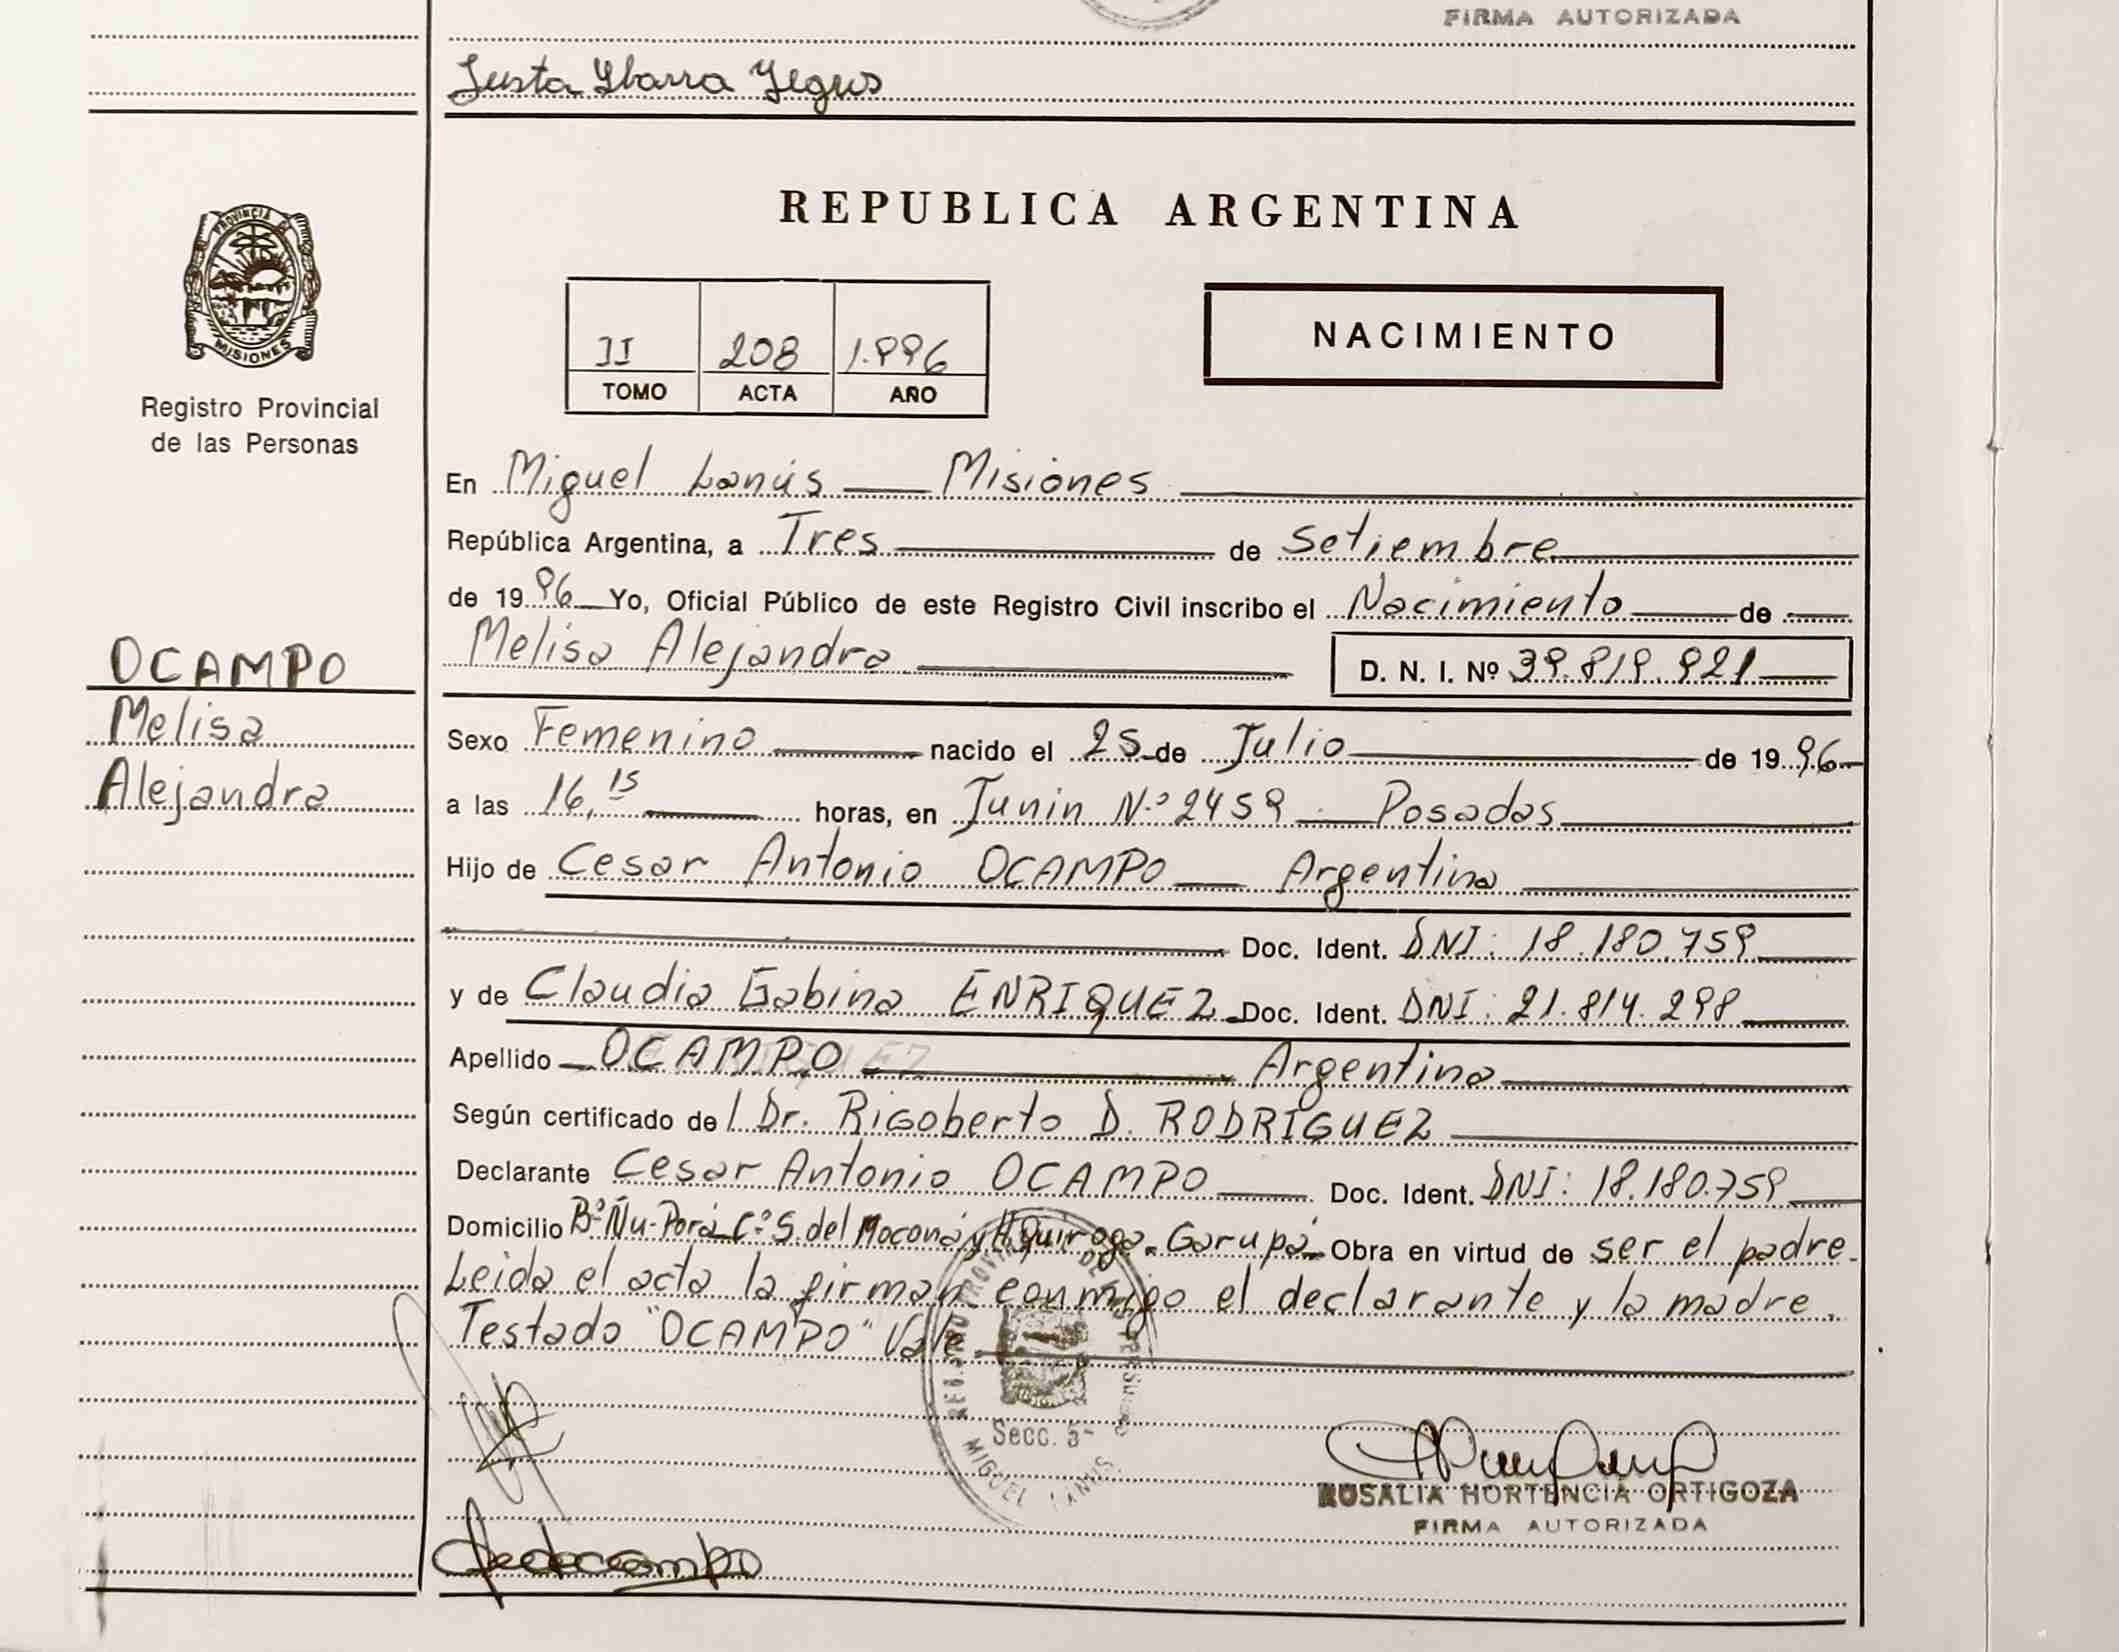 FIRMA AUTORIZADA
Justa Ybarra Yegros
PROVINCIA DE
MISIONES
Registro Provincial
de las Personas
OCAMPO
Melisa
Alejandra
REPUBLICA ARGENTINA
II 208 1.996
TOMO ACTA AÑO
NACIMIENTO
En Miguel Lanús Misiones
República Argentina, a Tres de Setiembre
de 1996 Yo, Oficial Público de este Registro Civil inscribo el Nacimiento de
Melisa Alejandra D. N. I. Nº 39.819.921
Sexo Femenino nacido el 25 de Julio de 1996
a las 16,15 horas, en Junin N.º 2459 Posadas
Hijo de Cesar Antonio OCAMPO Argentina
Doc. Ident. DNI: 18.180.759
y de Claudia Gabina ENRIQUEZ Doc. Ident. DNI: 21.814.298
Apellido OCAMPO Argentina
Según certificado de l Dr. Rigoberto D. RODRIGUEZ
Declarante Cesar Antonio OCAMPO Doc. Ident. DNI: 18.180.759
Domicilio Bº Ñu-Porá Cº S. del Moconá y H Quiroga. Garupá Obra en virtud de ser el padre.
Leida el acta la firman conmigo el declarante y la madre.
Testado "OCAMPO" Vale
Secc. 5ª
MIGUEL LANUS
ROSALIA HORTENCIA ORTIGOZA
FIRMA AUTORIZADA